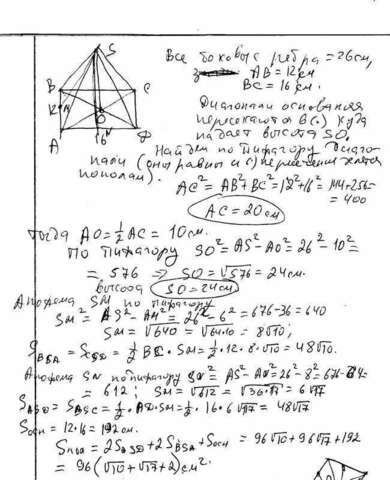 S
Все боковые ребра = 26см,
AB = 12см
BC = 16 см.
B C
12 M
O
A 16 N D
Диагонали основания
пересекаются в (.) куда
падает высота SO.
Найдем по Пифагору диаго-
нали (они равны и (.) пересечения делятся
пополам).
AC² = AB² + BC² = 12² + 16² = 144 + 256 =
= 400
AC = 20 см
Тогда AO = 1/2 AC = 10 см.
По Пифагору SO² = AS² - AO² = 26² - 10² =
= 576 ⇒ SO = √576 = 24 см.
высота SO = 24 см
Апофема SM по Пифагору
SM² = AS² - AM² = 26² - 6² = 676 - 36 = 640
SM = √640 = √64·10 = 8√10;
= 1/2 · SM = 1/2 · 12 · 8 · √10 = 48√10.
Апофема SN по Пифагору SN² = AS² - AN² = 26² - 8² = 676 - 64 =
= 612; SM = √612 = √36·17 = 6√17
= 1/2 · AD · SM = 1/2 · 16 · 6√17 = 48√17
Sосн = 12·16 = 192 см.
Sпов = 2S + 2S + Sосн = 96√10 + 96√17 + 192
= 96(√10 + √17 + 2) см².